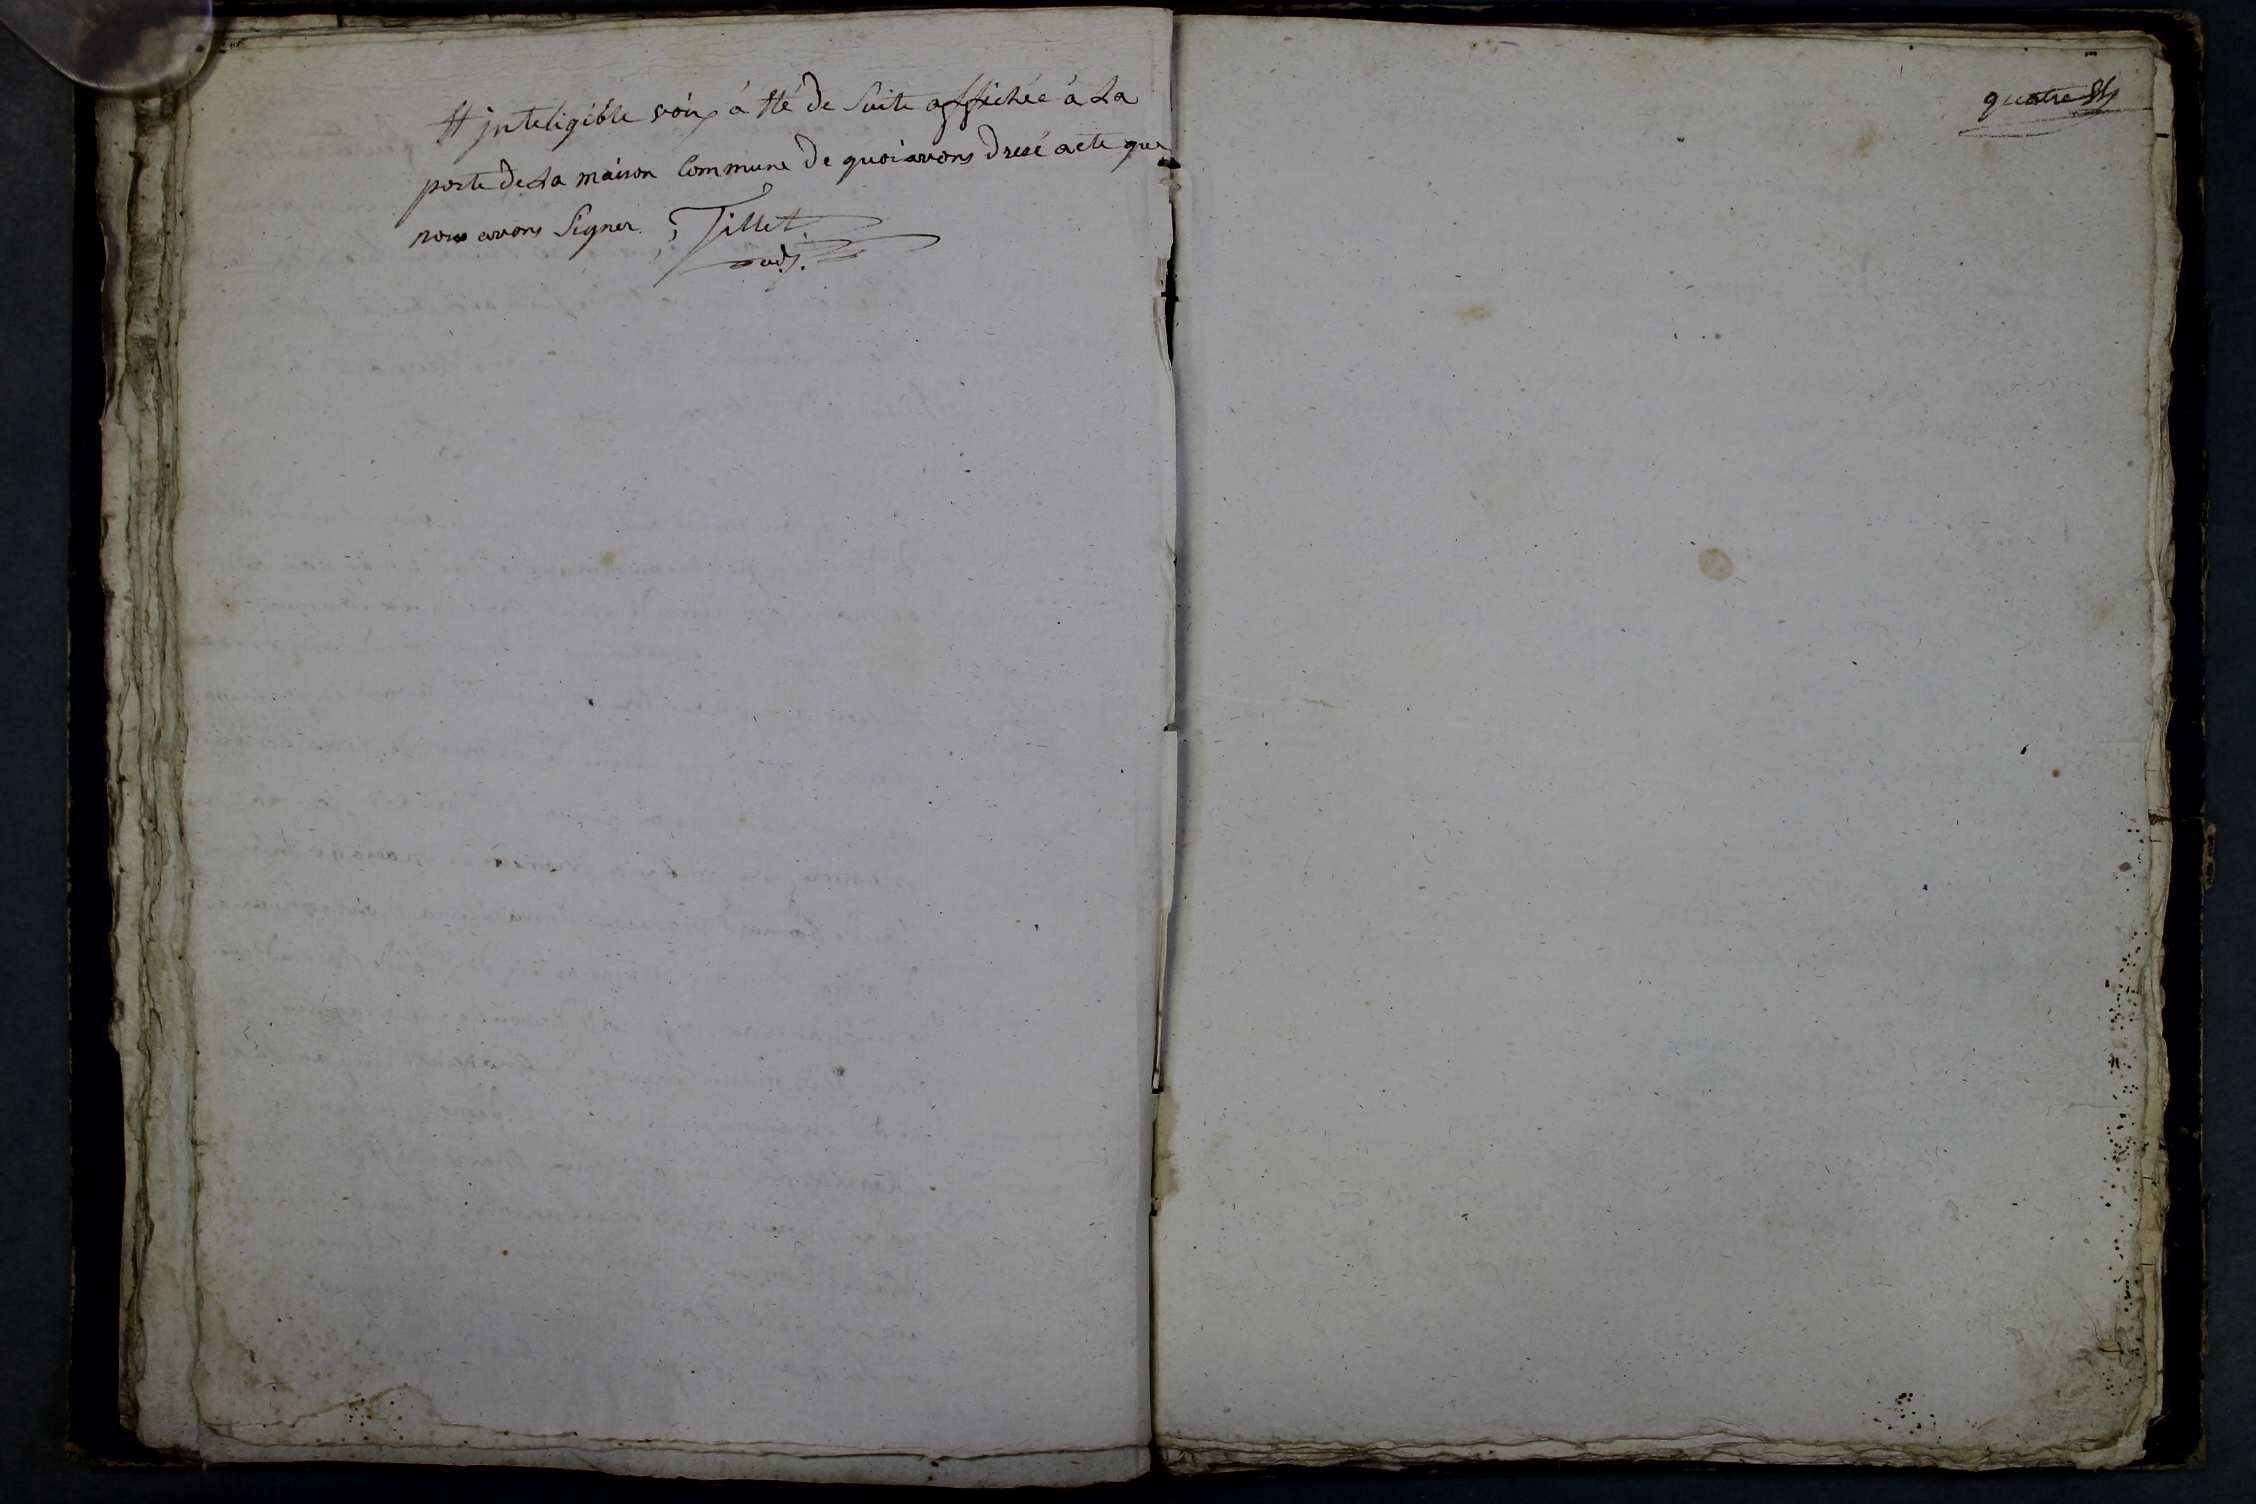 et jnteligible voix à été de Suite affichée à La
porte de La maison Commune de quoi avons dressé acte que
nous avons Signer. Tillet
adj.
quatre